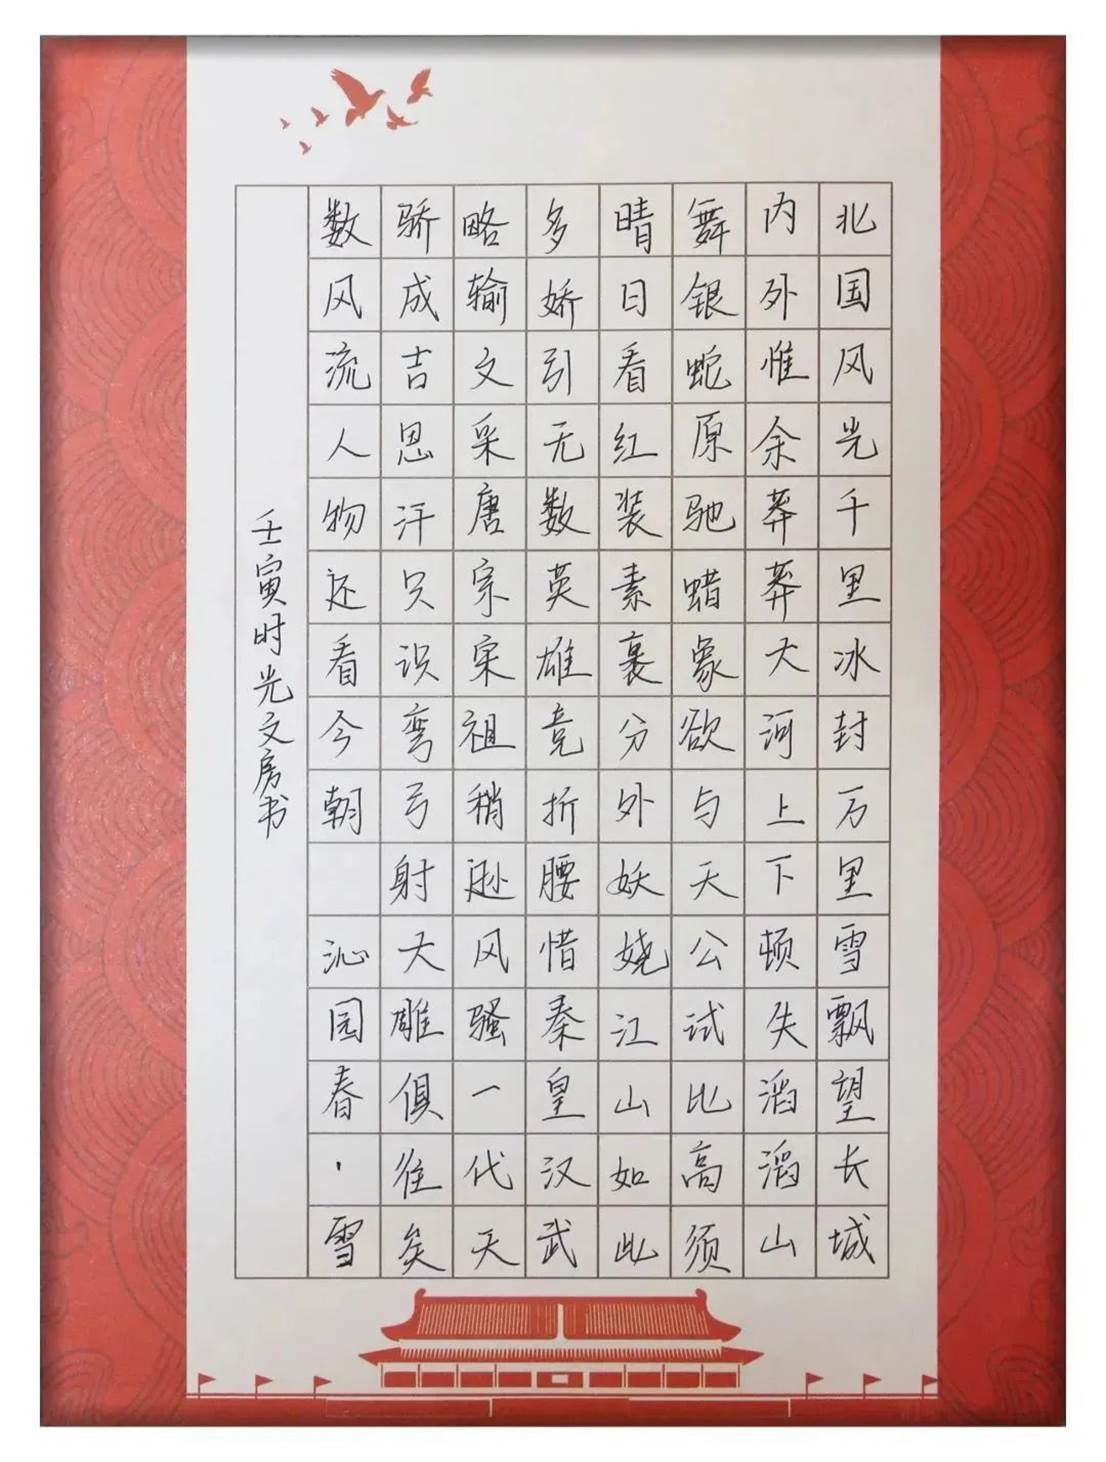 北国风光千里冰封万里雪飘望长城
内外惟余莽莽大河上下顿失滔滔山
舞银蛇原驰蜡象欲与天公试比高须
晴日看红装素裹分外妖娆江山如此
多娇引无数英雄竞折腰惜秦皇汉武
略输文采唐宗宋祖稍逊风骚一代天
骄成吉思汗只识弯弓射大雕俱往矣
数风流人物还看今朝 沁园春·雪
壬寅时光文房书